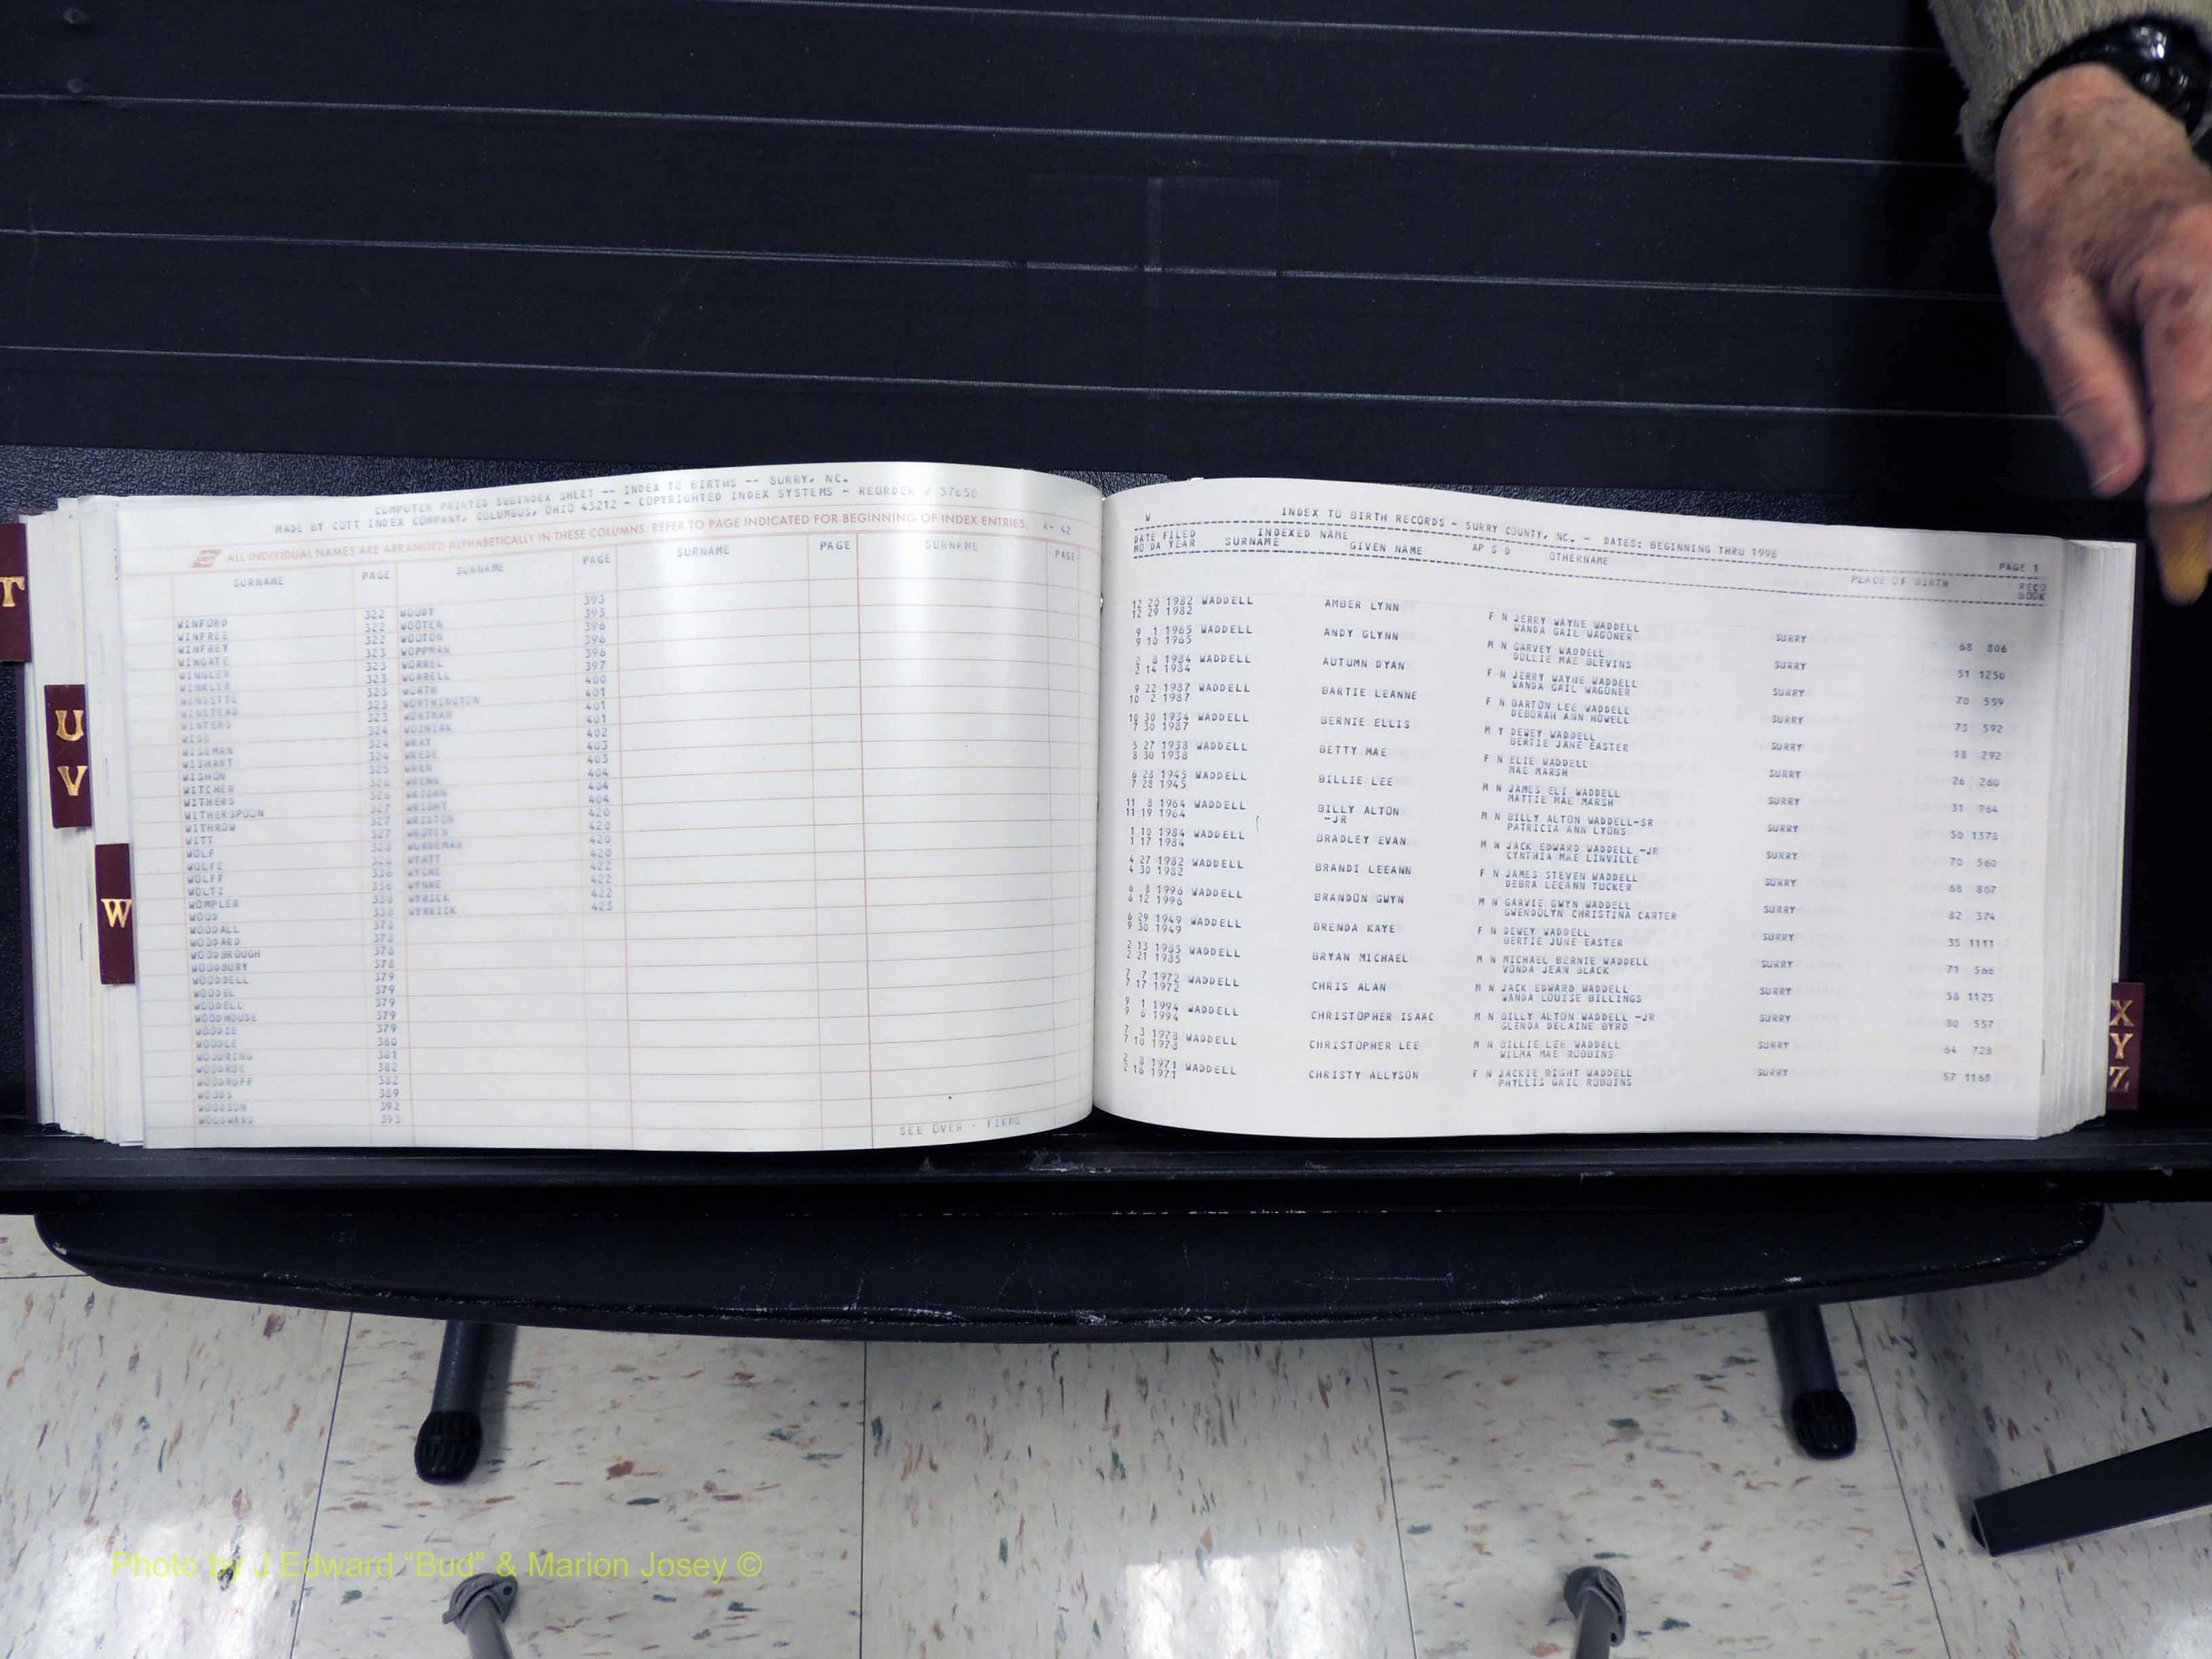 T
U
V
W
X
Y
Z
COMPUTER PRINTED SUBINDEX SHEET -- INDEX TO BIRTHS -- SURRY, NC.
MADE BY COTT INDEX COMPANY, COLUMBUS, OHIO 43212 - COPYRIGHTED INDEX SYSTEMS - REORDER # 37650
ALL INDIVIDUAL NAMES ARE ARRANGED ALPHABETICALLY IN THESE COLUMNS. REFER TO PAGE INDICATED FOR BEGINNING OF INDEX ENTRIES. R- 42
SURNAME PAGE SURNAME PAGE SURNAME PAGE SURNAME PAGE
WINFORD 322 WOODY 393
WINFREE 322 WOOTEN 393
WINFREY 322 WOOTON 396
WINGATE 323 WOPPMAN 396
WINGLER 323 WORREL 396
WINKLER 323 WORRELL 397
323 WORTH 400
WINSTEAD 323 WORTHINGTON 401
WINTERS 323 WORTMAN 401
WISE 324 WOZNIAK 401
WISEMAN 324 WRAY 402
WISHART 324 WREDE 403
WISHON 325 WREN 403
WITCHER 326 WRENN 404
WITHERS 326 404
WITHERSPOON 327 WRIGHT 404
WITHROW 327 WRISTON 420
WITT 327 WROTEN 420
WOLF 328 WURDEMAN 420
WOLFE 328 WYATT 420
WOLFF 336 422
WOLTZ 336 WYNNE 422
WOMPLER 338 WYRICK 422
WOOD 338 WYRRICK 423
WOODALL 378
WOODARD 378
WOODBROUGH 378
WOODBURY 378
WOODDELL 379
WOODEL 379
WOODELL 379
WOODHOUSE 379
WOODIE 379
WOODLE 380
WOODRING 381
WOODROE 382
WOODRUFF 382
WOODS 389
WOODSON 392
WOODWARD 393
SEE OVER - FIRMS
W INDEX TO BIRTH RECORDS - SURRY COUNTY, NC. - DATES: BEGINNING THRU 1998 PAGE 1
DATE FILED INDEXED NAME RECD
MO DA YEAR SURNAME GIVEN NAME AP S D OTHERNAME PLACE OF BIRTH BOOK
12 20 1982 WADDELL AMBER LYNN F N JERRY WAYNE WADDELL SURRY 68 806
12 29 1982 WANDA GAIL WAGONER
9 1 1965 WADDELL ANDY GLYNN M N GARVEY WADDELL SURRY 51 1250
9 10 1965 DOLLIE MAE BLEVINS
2 8 1984 WADDELL AUTUMN DYAN F N JERRY WAYNE WADDELL SURRY 70 559
2 14 1984 WANDA GAIL WAGONER
9 22 1987 WADDELL BARTIE LEANNE F N BARTON LEE WADDELL SURRY 73 592
10 2 1987 DEBORAH ANN HOWELL
10 30 1934 WADDELL BERNIE ELLIS M Y DEWEY WADDELL SURRY 18 292
7 30 1987 BERTIE JANE EASTER
5 27 1938 WADDELL BETTY MAE F N ELIE WADDELL SURRY 26 260
8 30 1938 MAE MARSH
6 28 1945 WADDELL BILLIE LEE M N JAMES ELI WADDELL SURRY 31 964
7 28 1945 MATTIE MAE MARSH
11 8 1964 WADDELL BILLY ALTON M N BILLY ALTON WADDELL-SR SURRY 50 1378
11 19 1964 -JR PATRICIA ANN LYONS
1 10 1984 WADDELL BRADLEY EVAN M N JACK EDWARD WADDELL -JR SURRY 70 560
1 17 1984 CYNTHIA MAE LINVILLE
4 27 1982 WADDELL BRANDI LEEANN F N JAMES STEVEN WADDELL SURRY 68 807
4 30 1982 DEBRA LEEANN TUCKER
6 8 1996 WADDELL BRANDON GWYN M N GARVIE GWYN WADDELL SURRY 82 374
6 12 1996 GWENDOLYN CHRISTINA CARTER
6 29 1949 WADDELL BRENDA KAYE F N DEWEY WADDELL SURRY 35 1111
9 30 1949 BERTIE JUNE EASTER
2 13 1985 WADDELL BRYAN MICHAEL M N MICHAEL BERNIE WADDELL SURRY 71 566
2 21 1985 VONDA JEAN BLACK
7 7 1972 WADDELL CHRIS ALAN M N JACK EDWARD WADDELL SURRY 58 1125
7 17 1972 WANDA LOUISE BILLINGS
9 1 1994 WADDELL CHRISTOPHER ISAAC M N BILLY ALTON WADDELL -JR SURRY 80 557
9 6 1994 GLENDA DELAINE BYRD
7 3 1978 WADDELL CHRISTOPHER LEE M N BILLIE LEE WADDELL SURRY 64 728
7 10 1978 WILMA MAE ROBBINS
2 8 1971 WADDELL CHRISTY ALLYSON F N JACKIE RIGHT WADDELL SURRY 57 1168
2 16 1971 PHYLLIS GAIL ROBBINS
Photo by J Edward “Bud” & Marion Josey ©